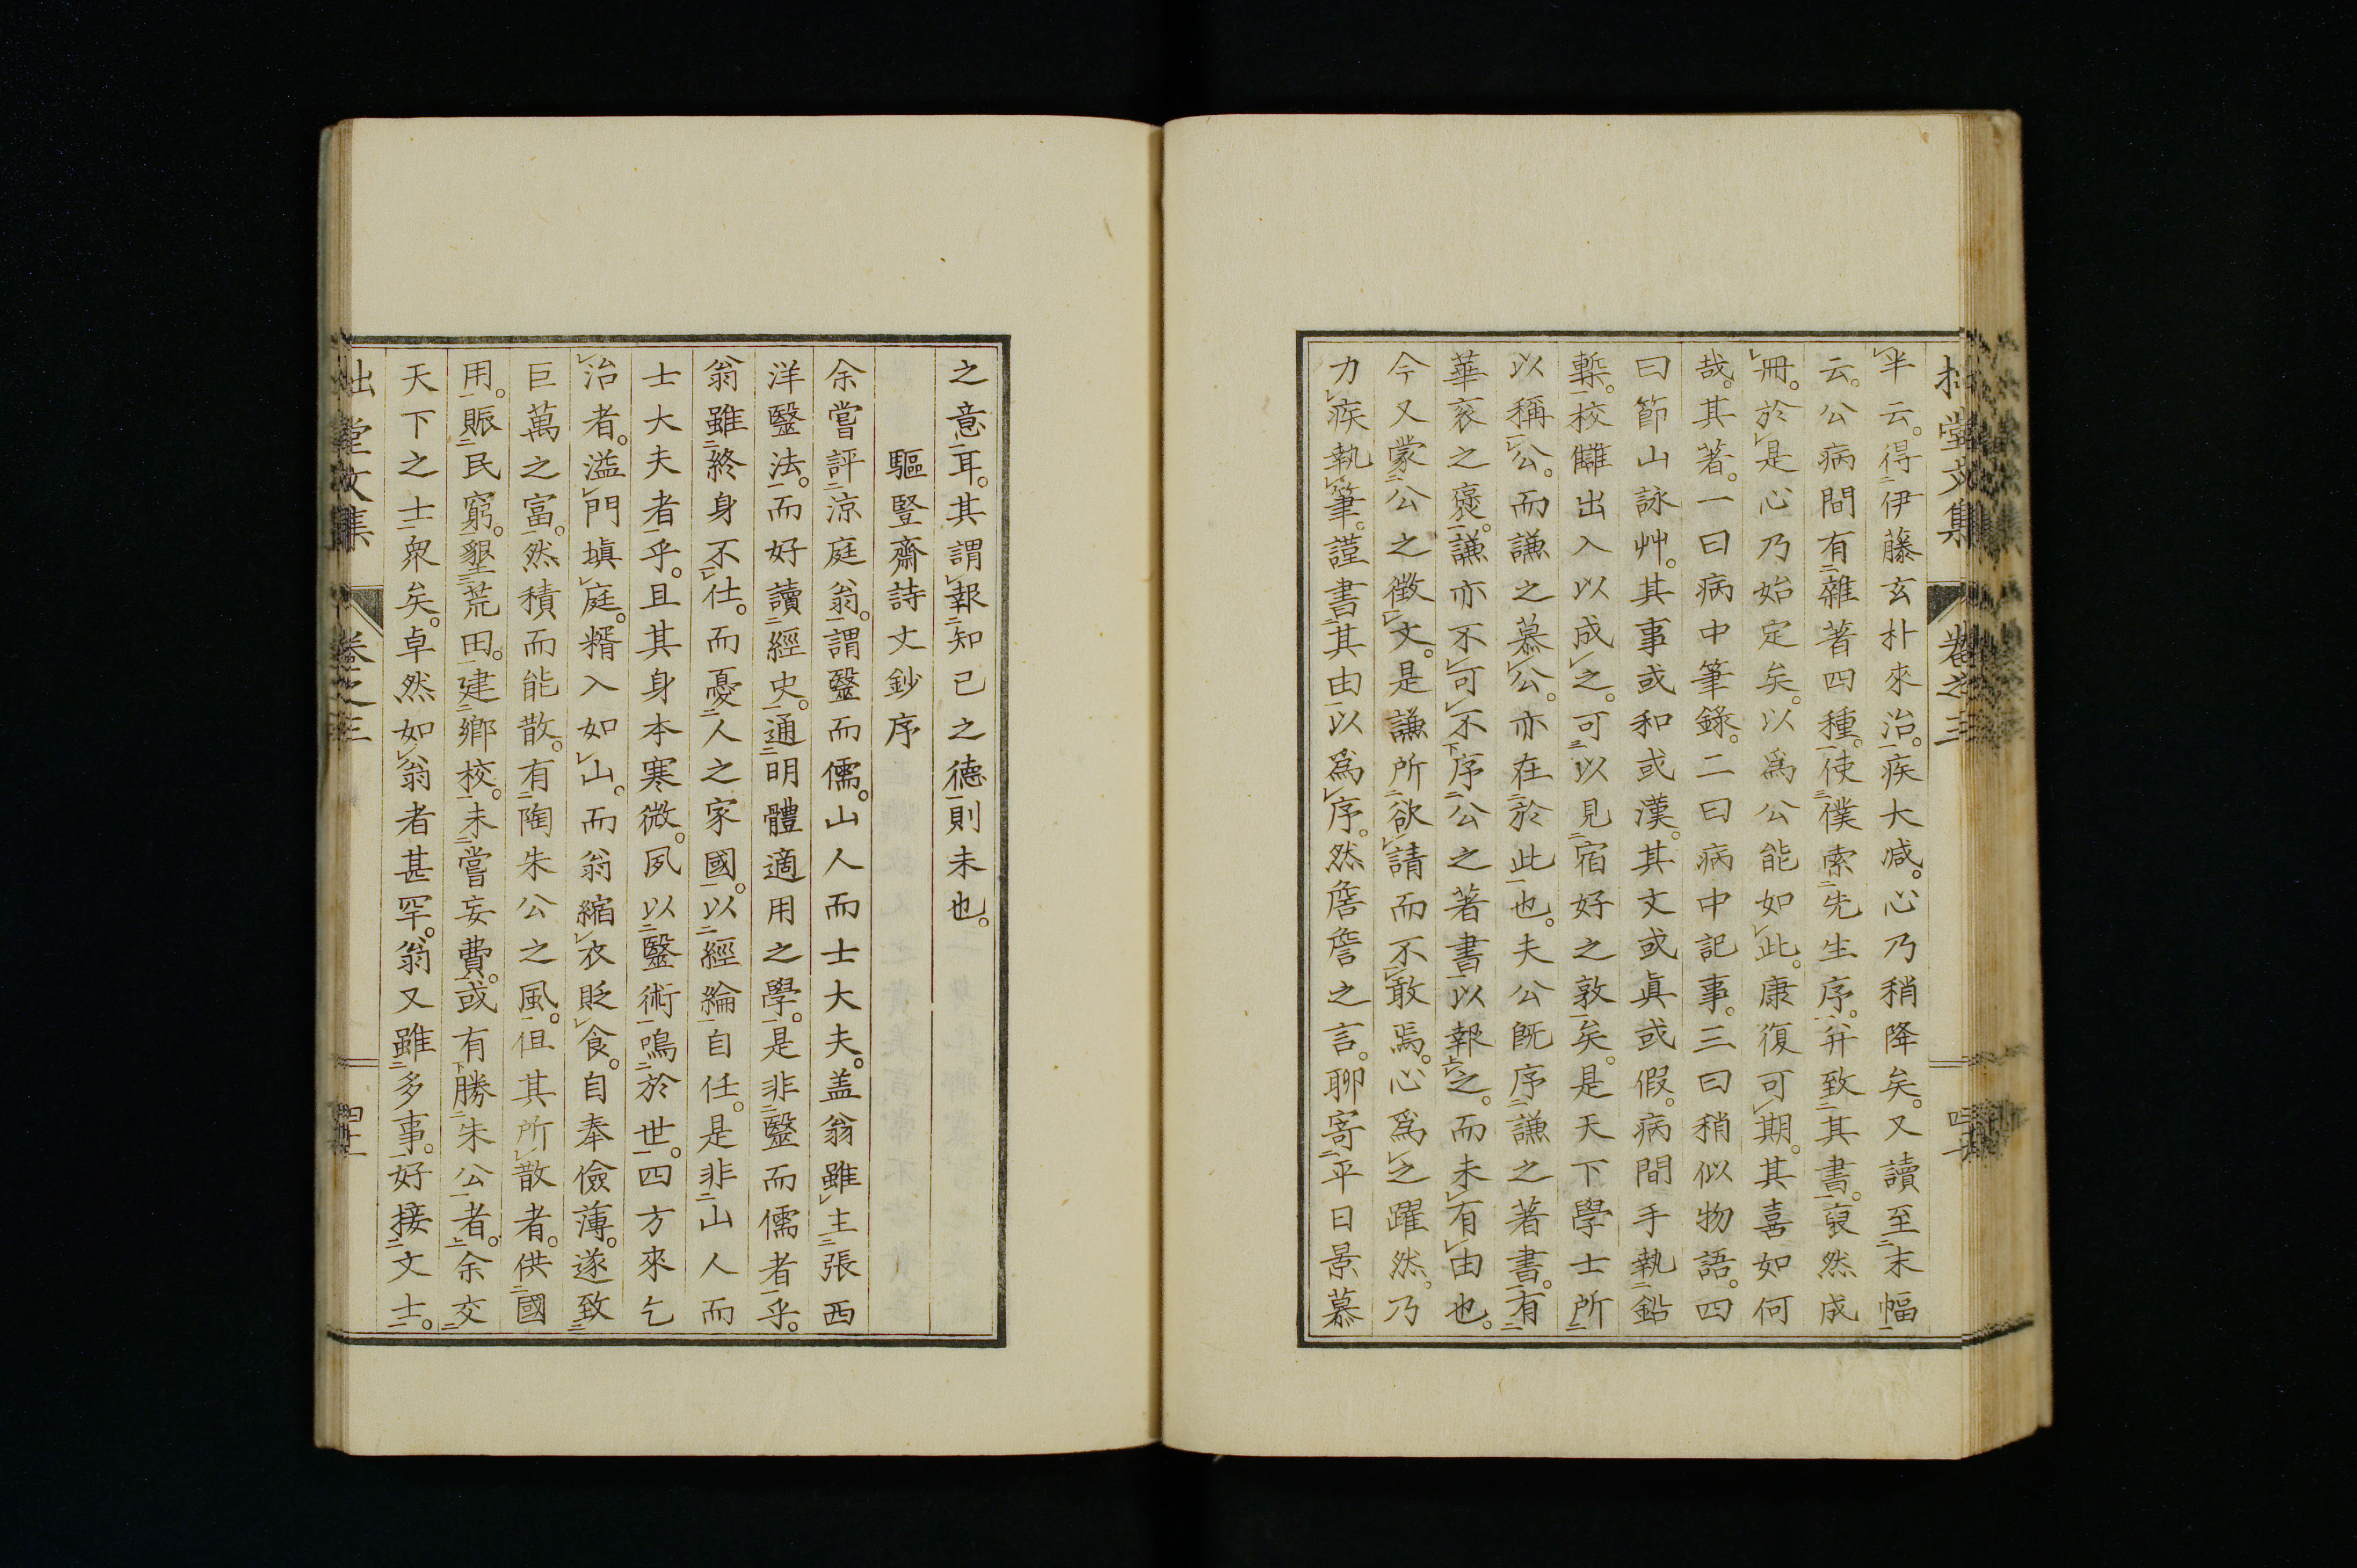 拙堂文集 卷之三
半云。得伊藤玄朴來治。疾大減。心乃稍降矣。又讀至末幅
云。公病間有雜著四種。使僕索先生序。并致其書。裒然成
冊。於是心乃始定矣。以爲公能如此。康復可期。其喜如何
哉。其著。一曰病中筆錄。二曰病中記事。三曰稍似物語。四
曰節山詠艸。其事或和或漢。其文或眞或假。病間手執鉛
槧。校讎出入以成之。可以見宿好之敦矣。是天下學士所
以稱公。而謙之慕公。亦在於此也。夫公既序謙之著書。有
華袞之褒。謙亦不可不序公之著書以報之。而未有由也。
今又蒙公之徵文。是謙所欲請而不敢焉。心爲之躍然。乃
力疾執筆。謹書其由以爲序。然詹詹之言。聊寄平日景慕
之意耳。其謂報知己之德則未也。
驅豎齋詩文鈔序
余嘗評涼庭翁。謂毉而儒。山人而士大夫。盖翁雖主張西
洋毉法。而好讀經史。通明體適用之學。是非毉而儒者乎。
翁雖終身不仕。而憂人之家國。以經綸自任。是非山人而
士大夫者乎。且其身本寒微。夙以毉術鳴於世。四方來乞
治者。溢門塡庭。糈入如山。而翁縮衣貶食。自奉儉薄。遂致
巨萬之富。然積而能散。有陶朱公之風。但其所散者。供國
用。賑民窮。墾荒田。建鄉校。未嘗妄費。或有勝朱公者。余交
天下之士衆矣。卓然如翁者甚罕。翁又雖多事。好接文士。
拙堂文集 卷之三